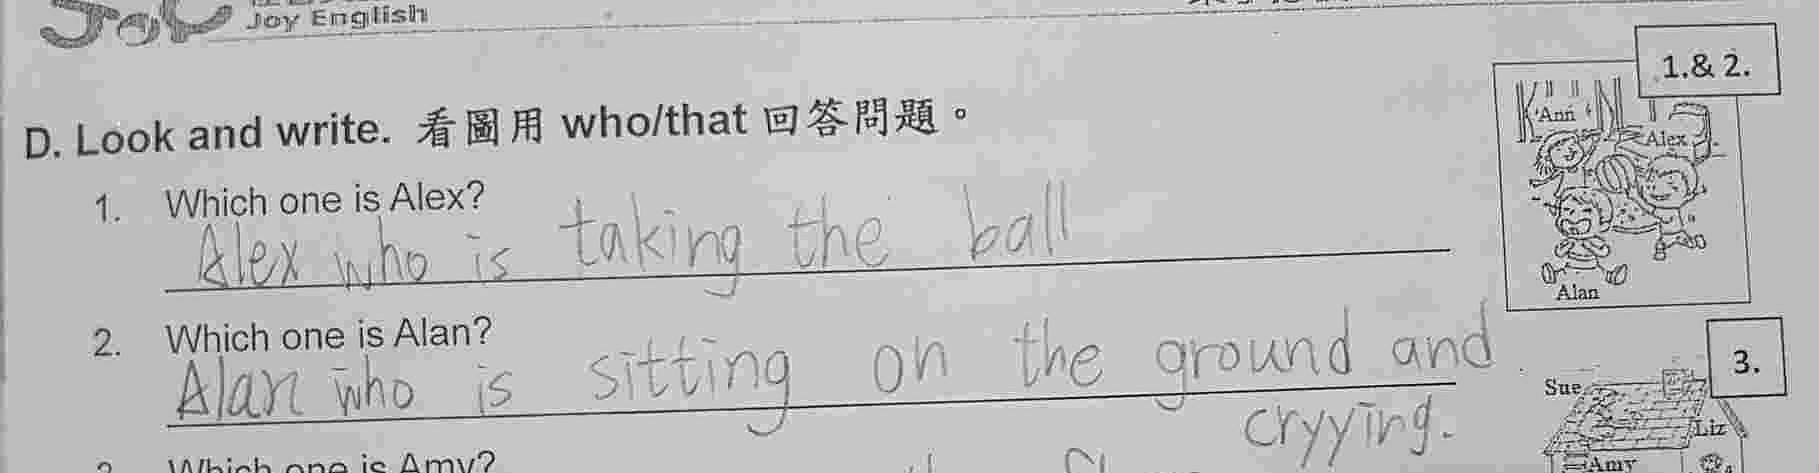 Joy
Joy English
1.& 2.
D. Look and write. 看圖用 who/that 回答問題。
Ann
Alex
1. Which one is Alex?
Alex who is taking the ball
Alan
2. Which one is Alan?
Alan who is sitting on the ground and
cryying.
3.
Sue
Liz
Which one is Amy?
Amy